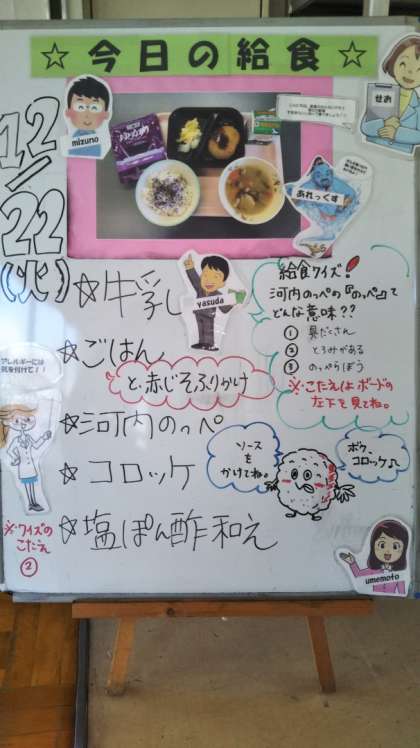 ☆今日の給食☆
12/22(火)
mizuno
せお
あれっくす
yasuda
☆牛乳
☆ごはん
と、赤じそふりかけ
☆河内のっぺ
☆コロッケ
☆塩ぽん酢和え
給食クイズ!
河内のっぺの『のっぺ』って
どんな意味??
① 具だくさん
② とろみがある
③ のっぺらぼう
※こたえはボードの
左下を見てね。
ソースを
かけてね。
ボク、
コロッケ♪
アレルギーには
気を付けて!!
※クイズの
こたえ
②
umemoto